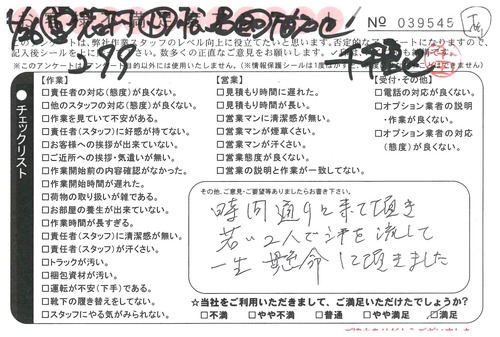 No 039545
このアンケートは、弊社作業スタッフのレベル向上に役立てたいと思います。否定的なアンケートになりますので、
記入後シールを上に
※このアンケートは
チェックリスト
【作業】
□責任者の対応(態度)が良くない。
□他のスタッフの対応(態度)が良くない。
□作業を見ていて不安がある。
□責任者(スタッフ)に好感が持てない。
□お客様への挨拶が出来ていない。
□ご近所への挨拶・気遣いが無い。
□作業開始前の内容確認がなかった。
□作業開始時間が遅れた。
□荷物の取り扱いが雑である。
□お部屋の養生が出来ていない。
□作業時間が長すぎる。
□責任者(スタッフ)に清潔感が無い。
□責任者(スタッフ)が汗くさい。
□トラックが汚い。
□梱包資材が汚い。
□運転が不安(下手)である。
□靴下の履き替えをしてない。
□スタッフにやる気がみられない。
【営業】
□見積もり時間に遅れた。
□見積もり時間が長い。
□営業マンに清潔感が無い。
□営業マンが煙草くさい。
□営業マンが汗くさい。
□営業態度が良くない。
□営業の説明と作業が一致してない。
【受付・その他】
□電話の対応が良くない。
□オプション業者の説明
・作業が良くない。
□オプション業者の対応
(態度)が良くない。
その他、ご意見・ご要望等ありましたらお書き下さい。
時間通りに来て頂き
若い2人で汗を流して
一生懸命に頂きました
☆当社をご利用いただきまして、ご満足いただけたでしょうか?
□不満 □やや不満 □普通 □やや満足 □満足